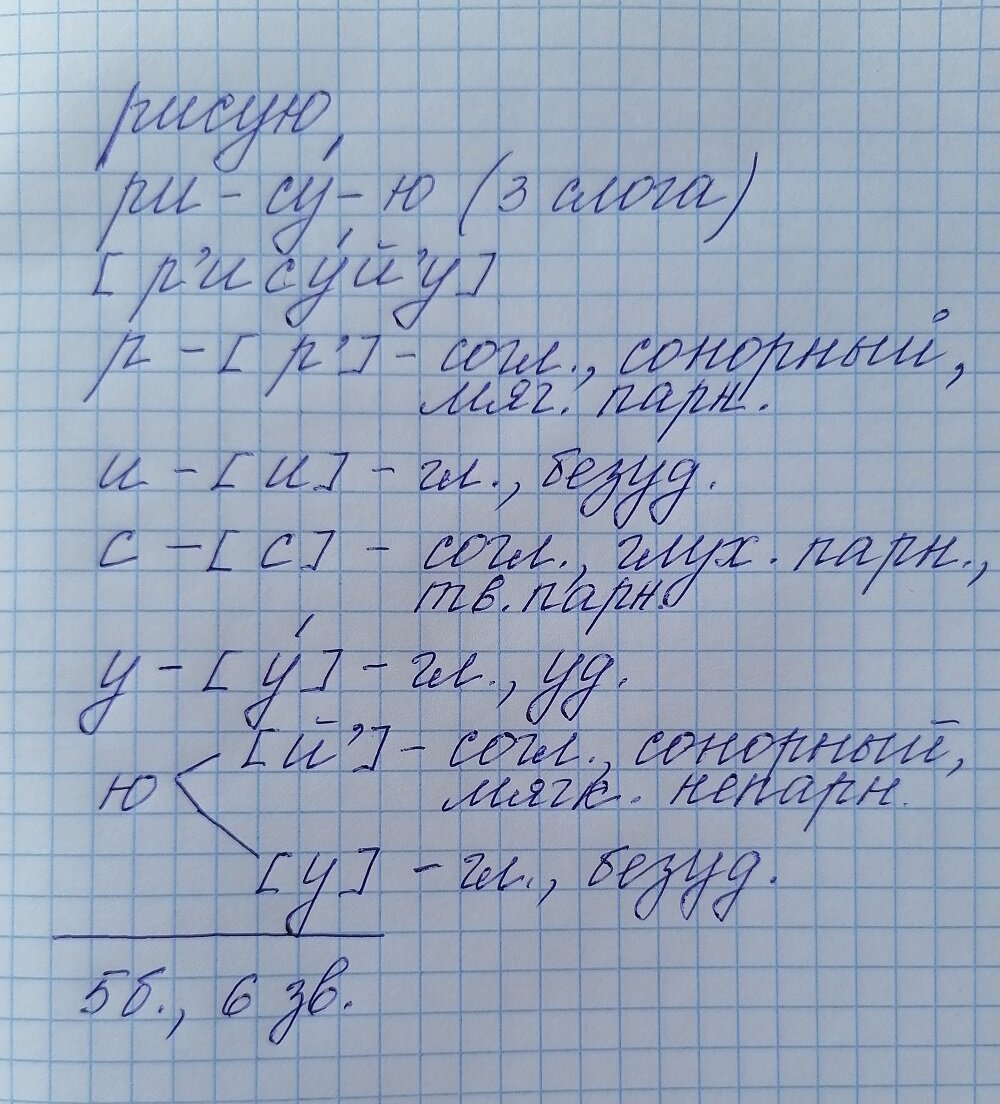 рисую
ри - су́ - ю (3 слога)
[р'ису́й'у]
р - [р'] - согл., сонорный,
мяг. парн.
и - [и] - гл., безуд.
с - [с] - согл., глух. парн.,
тв. парн.
у - [у́] - гл., уд.
[й'] - согл., сонорный,
ю
мягк. непарн.
[у] - гл., безуд.
5б., 6 зв.